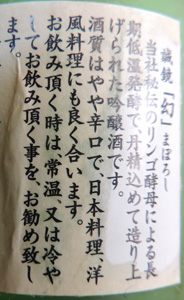 誠鏡「幻」まぼろし
当社秘伝のリンゴ酵母による長
期低温発酵で丹精込めて造り上
げられた吟醸酒です。
酒質はやや辛口で、日本料理、洋
風料理にも良く合います。
お飲み頂く時は、常温、又は冷や
してお飲み頂く事を、お勧め致し
ます。